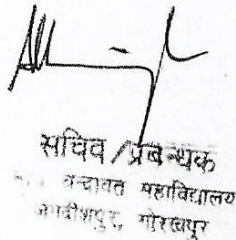 सचिव / प्रबन्धक
चन्द्रावत महाविद्यालय
जगदीशपुर, गोरखपुर